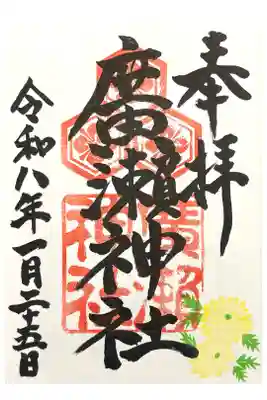 奉拝
廣瀬神社
廣瀬神社
令和八年一月二十五日